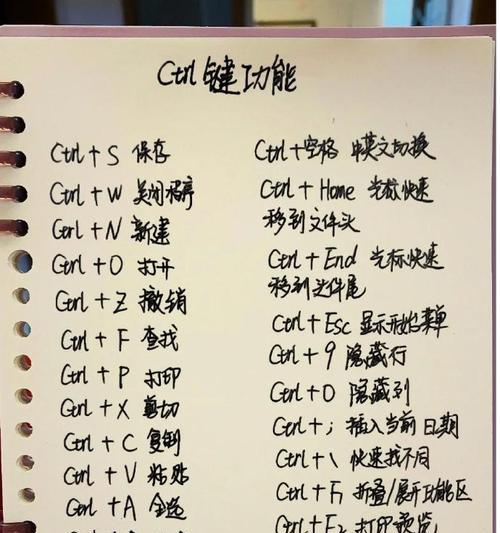 Ctrl键功能
Ctrl + S 保存
Ctrl + W 关闭程序
Ctrl + N 新建
Ctrl + O 打开
Ctrl + Z 撤销
Ctrl + F 查找
Ctrl + P 打印
Ctrl + X 剪切
Ctrl + C 复制
Ctrl + V 粘贴
Ctrl + A 全选
Ctrl +空格 中英文切换
Ctrl + Home 光标快速
移到文件头
Ctrl + End 光标快速
移到文件尾
Ctrl + Esc 显示开始菜单
Ctrl + 9 隐藏行
Ctrl + 0 隐藏列
Ctrl + ; 插入当前日期
Ctrl + \ 快速找不同
Ctrl + F1 折叠/展开功能区
Ctrl + F2 打印预览